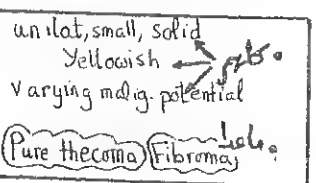 unilat, small, solid
Yellowish
Varying malig. potential
Pure thecoma Fibroma,